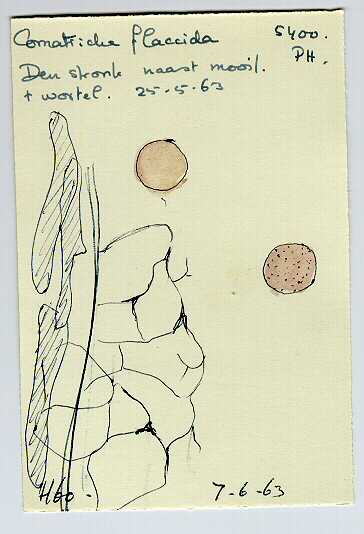 Comatricha flaccida
S400.
PH.
Den stronk naast mooil.
+ wortel. 25-5-63
H60-
7-6-63